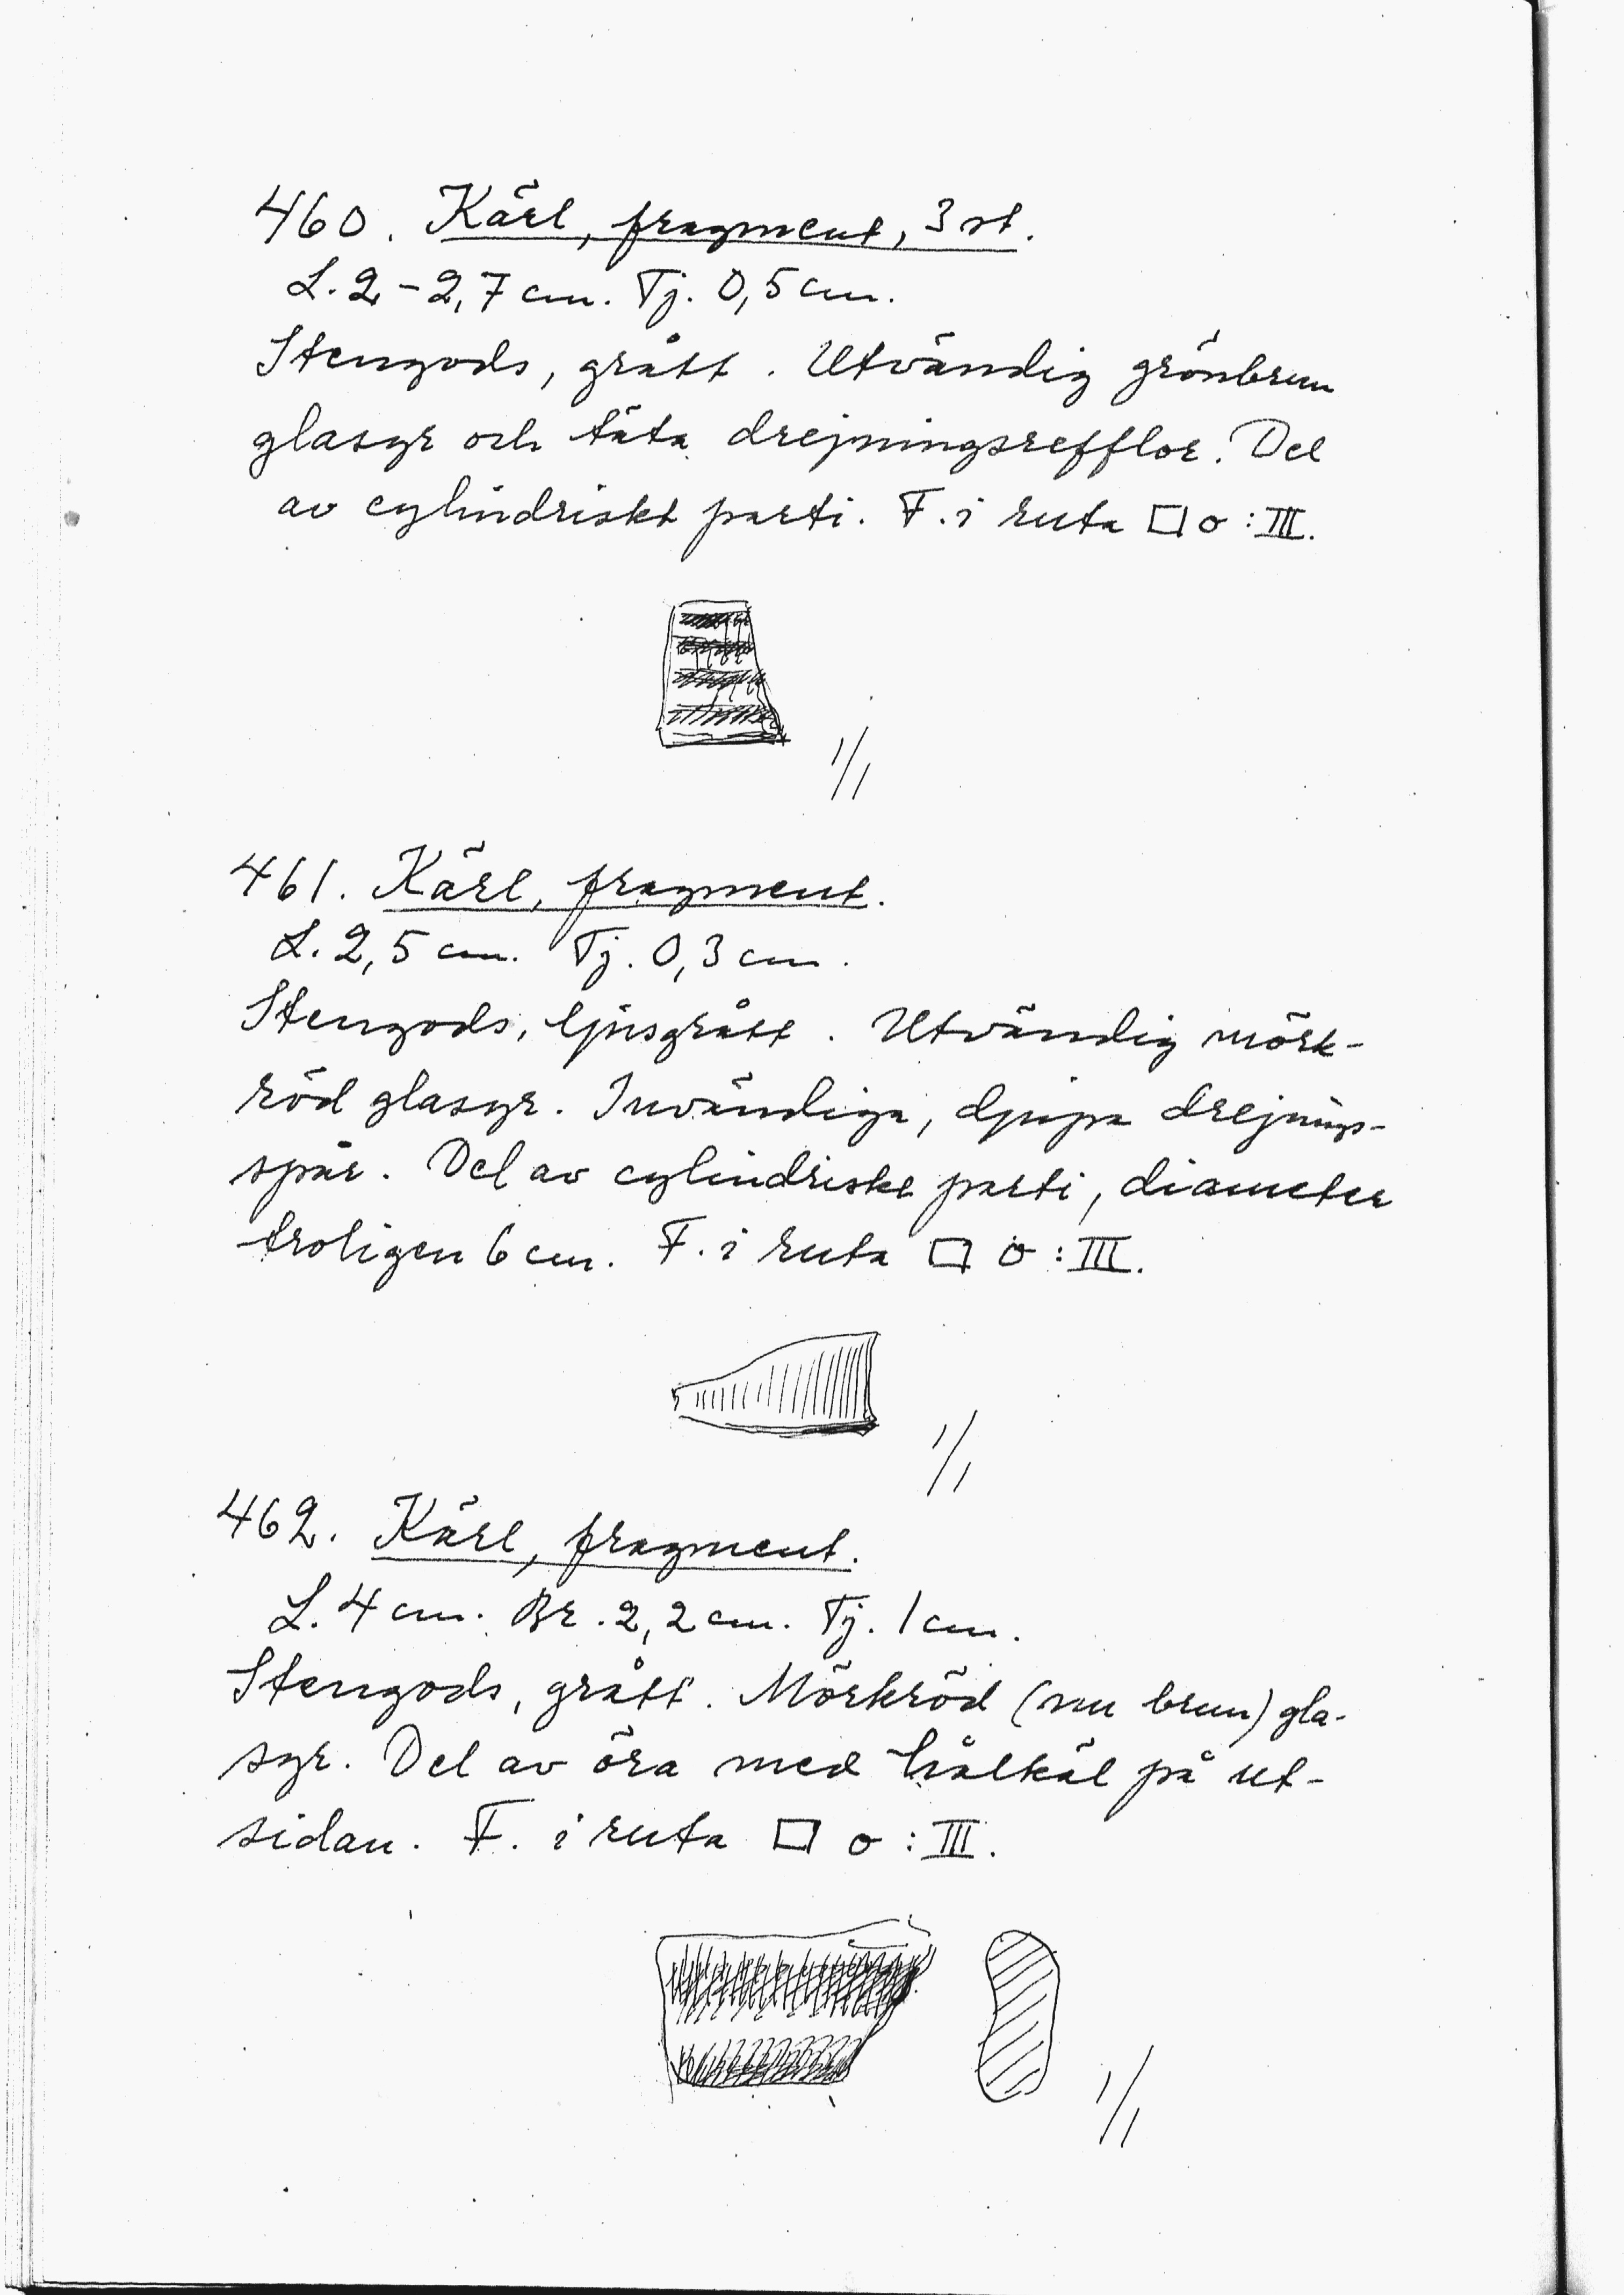 460. Kärl, fragment, 3 st.
L. 2-2,7 cm. Tj. 0,5 cm.
Stengods, grått. Utvändig grönbrun
glasyr och täta drejningsrefflor. Del
av cylindriskt parti. F. i ruta □ o : III.
1/1
461. Kärl, fragment.
L. 2,5 cm. Tj. 0,3 cm.
Stengods, ljusgrått. Utvändig mörk-
röd glasyr. Invändiga, djupa drejnings-
spår. Del av cylindriskt parti, diameter
troligen 6 cm. F. i ruta □ o : III.
1/1
462. Kärl, fragment.
L. 4 cm. Br. 2,2 cm. Tj. 1 cm.
Stengods, grått. Mörkröd (nu brun) gla-
syr. Del av öra med hålkäl på ut-
sidan. F. i ruta □ o : III.
1/1